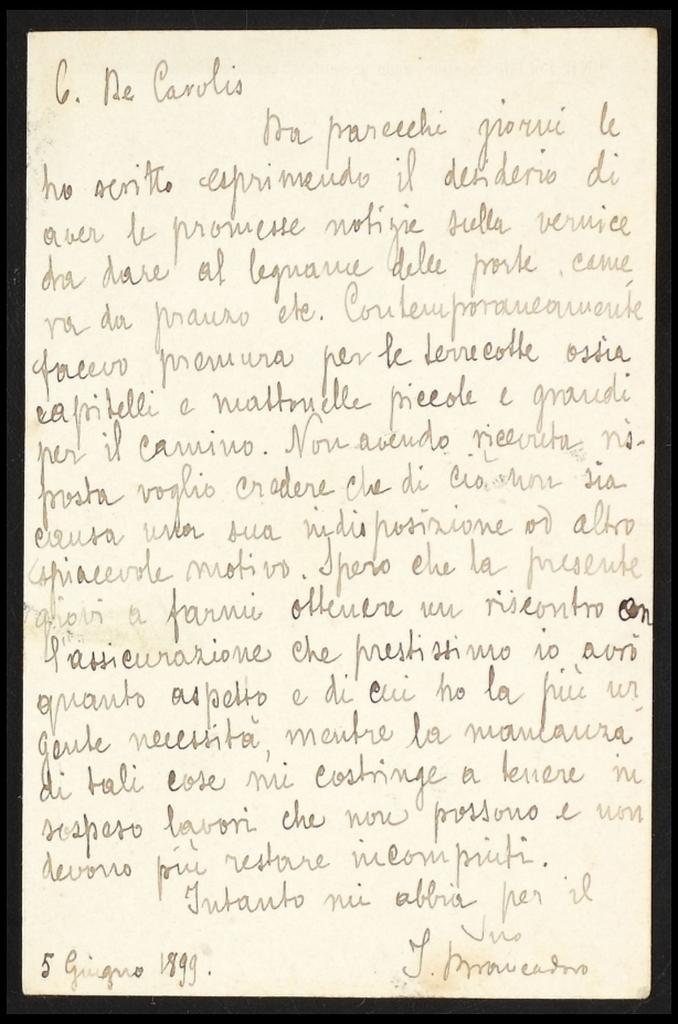 C. De Carolis
Da parecchi giorni le
ho scritto esprimendo il desiderio di
aver le promesse notizie sulla vernice
da dare al legname delle porte, came
ra da pranzo etc. Contemporaneamente
facevo premura per le terrecotte ossia
capitelli e mattonelle piccole e grandi
per il camino. Non avendo ricevuta ris-
posta voglio credere che di ciò non sia
causa una sua indisposizione od altro
spiacevole motivo. Spero che la presente
giovi a farmi ottenere un riscontro con
l'assicurazione che prestissimo io avrò
quanto aspetto e di cui ho la più ur
gente necessità, mentre la mancanza
di tali cose mi costringe a tenere in
sospeso lavori che non possono e non
devono più restare incompiuti.
Intanto mi abbia per il
Suo
5 Giugno 1899.